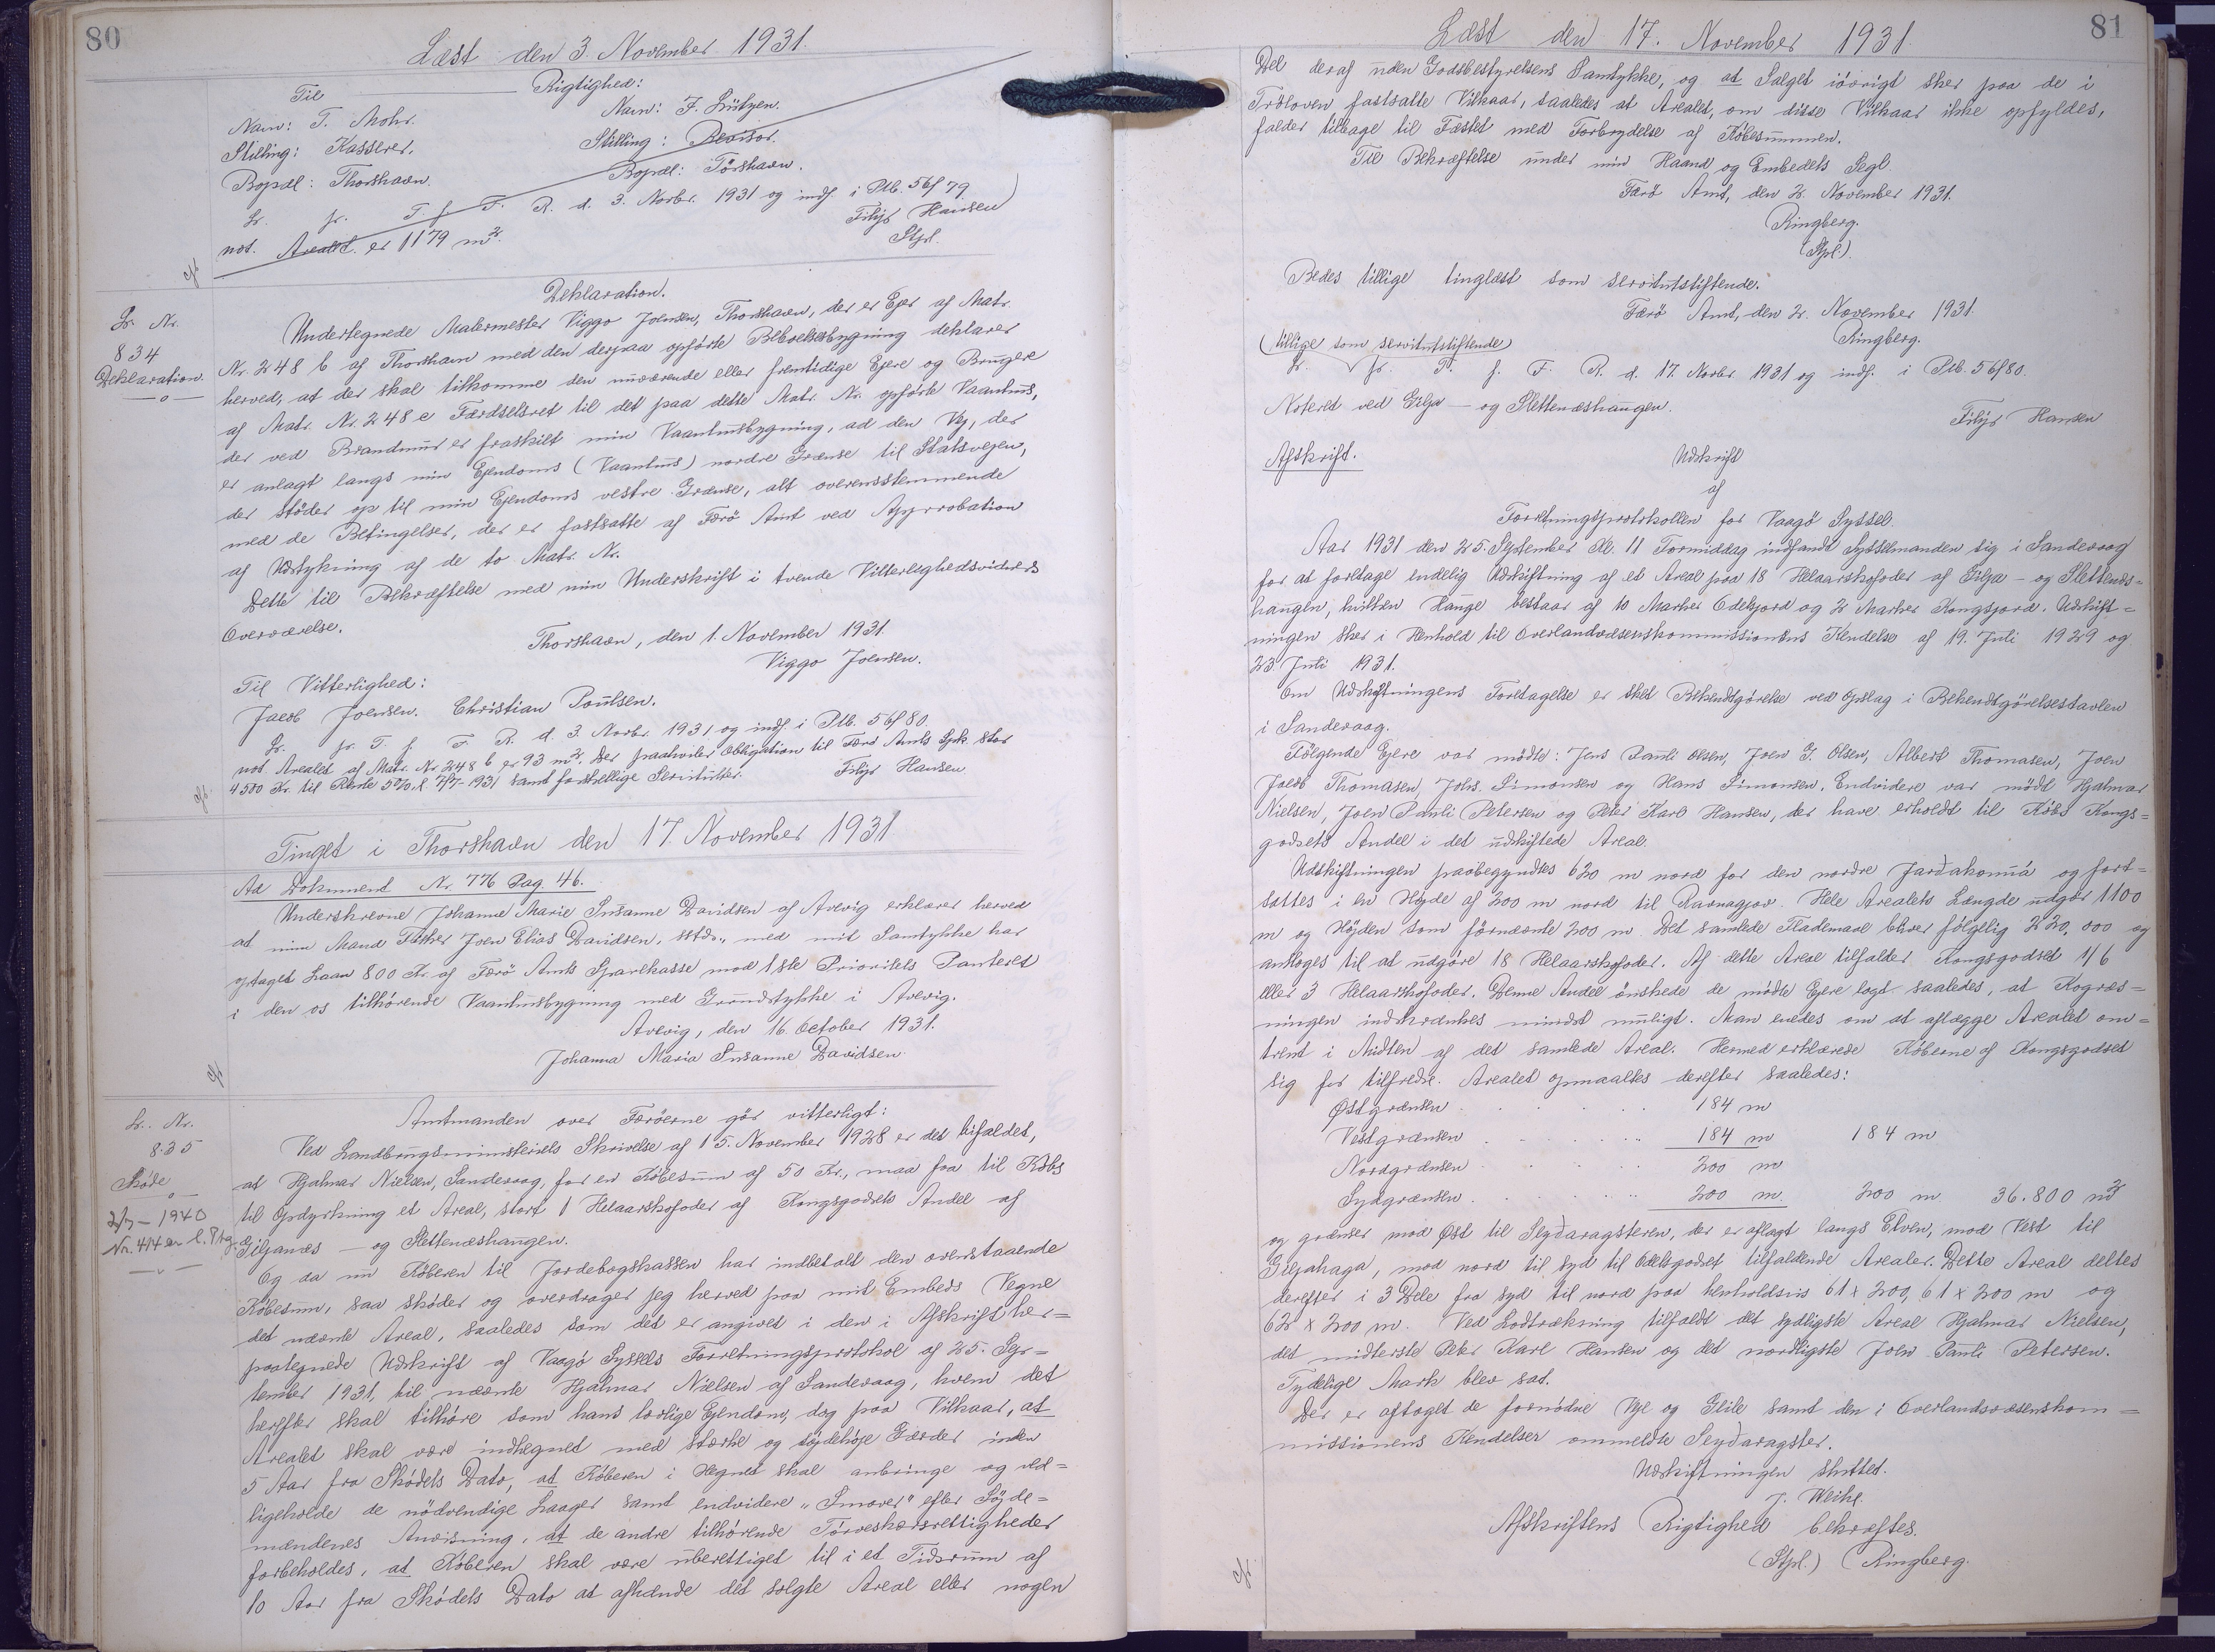 80
Læst den 3 November 1931.
Til Rigtighed:
Navn: T. Mohr. Navn: F. Lützen.
Stilling: Kasserer. Stilling: Revisor.
Bopæl: Thorshavn. Bopæl: Tórshavn.
Lr. fr. T. f. F. R. d. 3. Novbr. 1931 og indf. i Ptb. 56f 79.
not. Arealet er 1179 m². Filip Hansen
Stpl.
cft
Lr. Nr.
834
Deklaration.
Deklaration.
Undertegnede Malermester Viggo Joensen, Thorshavn, der er Ejer af Matr.
Nr. 248 b af Thorshavn med den derpaa opførte Beboelsesbygning deklarer
herved, at der skal tilkomme den nuværende eller fremtidige Ejere og Brugere
af Matr. Nr. 248 e Færdselsret til det paa dette Matr. Nr. opførte Vaanhus,
der ved Brandmur er fraskilt min Vaanhusbygning, ad den Vej, der
er anlagt langs min Ejendoms (Vaanhus) nordre Grænse til Statsvejen,
der støder op til min Ejendoms vestre Grænse, alt overensstemmende
med de Betingelser, der er fastsatte af Færø Amt ved Approbation
af Udstykning af de to Matr. Nr.
Dette til Bekræftelse med min Underskrift i tvende Vitterlighedsvidners
Overværelse.
Thorshavn, den 1. November 1931.
Viggo Joensen.
Til Vitterlighed:
Jacob Joensen. Christian Poulsen.
Lr. fr. T. f. F. R. d. 3. Novbr. 1931 og indf. i Ptb. 56f 80.
not. Arealet af Matr. Nr 248 b er 93 m². Der paahviler Obligation til Færø Amts Spk. stor
4500 Kr. til Rente 5% d. 7/7-1931 samt forskellige Servitutter. Filip Hansen
cft.
Tinget i Thorshavn den 17. November 1931
Ad Dokument Nr. 776 Pag. 46.
Underskrevne Johanne Marie Susanne Davidsen af Avevig erklærer herved
at min Mand Fisker Joen Elias Davidsen, sstds., med mit Samtykke har
optaget Laan 800 Kr. af Færø Amts Sparekasse mod 1ste Prioritets Panteret
i den os tilhørende Vaanhusbygning med Grundstykke i Avevig.
Avevig, den 16. October 1931.
Johanna Maria Susanne Davidsen.
cft
Lr. Nr.
835
Skøde
2/7 - 1940
Nr. 414
Amtmanden over Færøerne gør vitterligt:
Ved Landbrugsministeriets Skrivelse af 15. November 1928 er det bifaldet,
at Hjalmar Nielsen, Sandevaag, for en Købesum af 50 Kr., maa faa til Købs
til Opdyrkning et Areal, stort 1 Helaarskofoder af Kongsgodsets Andel af
Giljanæs - og Slettenæshaugen.
Og da nu Køberen til Jordebogskassen har indbetalt den ovenstaaende
Købesum, saa skøder og overdrager jeg herved paa mit Embeds Vegne
det nævnte Areal, saaledes som det er angivet i den i Afskrift her=
paategnede Udskrift af Vaagø Syssels Forretningsprotokol af 25. Sep=
tember 1931, til nævnte Hjalmar Nielsen af Sandevaag, hvem det
herefter skal tilhøre som hans lovlige Ejendom, dog paa Vilkaar, at
Arealet skal være indhegned med stærke og lojdehøje Gærder inden
5 Aar fra Skødets Dato, at Køberen i Hegnet skal anbringe og ved=
ligeholde de nødvendige Laager samt endvidere "Smover" efter Syde=
mændenes Anvisning, at de andre tilhørende Tørveskærsrettigheder
forbeholdes, at Køberen skal være uberettiget til i et Tidsrum af
10 Aar fra Skødets Dato at afhænde det solgte Areal eller nogen
81
Læst den 17. November 1931.
Del deraf uden Godsbestyrelsens Samtykke, og at Salget iøvrigt sker paa de i
Tresloven fastsatte Vilkaar, saaledes at Arealet, om disse Vilkaar ikke opfyldes,
falder tilbage til Fæstet med Forbrydelse af Købesummen.
Til Bekræftelse under min Haand og Embedets Segl.
Færø Amt, den 2. November 1931.
Ringberg.
(Stpl).
Bedes tillige tinglæst som servitutstiftende.
Færø Amt, den 2. November 1931.
Ringberg.
(tillige som servitutstiftende)
Lr. fr. T. f. F. R. d. 17. Novbr 1931 og indf. i Ptb. 56f80.
Noteret ved Gilja - og Slettenæshaugen.
Filip Hansen
Afskrift.
Udskrift
af
Forretningsprotokollen for Vaagø Syssel.
Aar 1931 den 25. September Kl. 11 Formiddag indfandt Sysselmanden sig i Sandevaag
for at foretage endelig Udskiftning af et Areal paa 18 Helaarskofoder af Gilja - og Slettenæs=
haugen, hvilken Hauge bestaar af 10 Marker Odelsjord og 2 Marker Kongsjord. Udskift=
ningen sker i Henhold til Overlandvæsenskommissionens Kendelse af 19. Juli 1929 og
23 Juli 1931.
Om Udskiftningens Foretagelse er sket Bekendtgørelse ved Opslag i Bekendtgørelsestavlen
i Sandevaag.
Følgende Ejere var mødte: Jens Pauli Olsen, Joen J. Olsen, Albert Thomasen, Joen
Jacob Thomasen, Johs. Simonsen og Hans Simonsen. Endvidere var mødt Hjalmar
Nielsen, Joen Pauli Petersen og Peter Karl Hansen, der have erholdt til Købs Kongs=
godsets Andel i det udskiftede Areal.
Udskiftningen paabegyndtes 620 m nord for den nordre Jarðakonuá og fort=
sattes i en Højde af 200 m nord til Ravnagjov. Hele Arealets Længde udgør 1100
m og Højden som førnævnte 200 m. Det samlede Flademaal bliver følgelig 220,000 og
antoges til at udgøre 18 Helaarskofoder. Af dette Areal tilfalder Kongsgodset 1/6
eller 3 Helaarskofoder. Denne Andel ønskede de mødte Ejere lagt saaledes, at Kogræs=
ningen indskrænkes mindst muligt. Man enedes om at aflægge Arealet om=
trent i Midten af det samlede Areal. Hermed erklærede Køberne af Kongsgodset
sig for tilfredse. Arealet opmaaltes derefter saaledes:
Østgrænsen . . . . . 184 m
Vestgrænsen . . . . 184 m 184 m
Nordgrænsen . . . . 200 m
Sydgrænsen . . . . 200 m. 200 m. 36.800 m²
og grænser mod Øst til Seyðaragsteren, der er aflagt langs Elven, mod Vest til
Giljahaga, mod nord til syd til Odelsgodset tilfaldende Arealer. Dette Areal deltes
derefter i 3 Dele fra syd til nord paa henholdsvis 61 x 200, 61 x 200 m og
62 x 200 m. Ved Lodtrækning tilfaldt det sydligste Areal Hjalmar Nielsen,
det midterste Peter Karl Hansen og det nordligste Joen Pauli Petersen.
Tydelige Mark blev sat.
Der er aftaget de fornødne Veje og Geile samt den i Overlandsvæsenskom=
missionens Kendelser ommeldte Seyðaragster.
Udskiftningen sluttet.
J. Weihe.
Afskriftens Rigtighed bekræftes.
(Stpl.) Ringberg.
cft